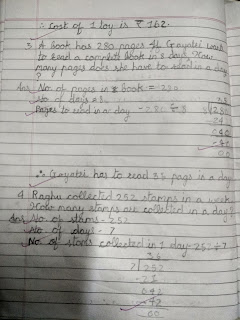 ∴ Cost of 1 toy is ₹ 162.
3. A book has 280 pages If Gayatri want
to read a complete book in 8 days. How
many pages does she have to read in a day
?
Ans No. of pages in book = 280
No of days = 8
Pages to read in a day = 280 ÷ 8
∴ Gayatri has to read 35 page in a day
4 Raghu collected 252 stamps in a week
How many stamps are collected in a day?
Ans No. of stams - 252
No. of days - 7
No. of collected in 1 day - 252 ÷ 7
36
7 252
- 21
042
- 42
00